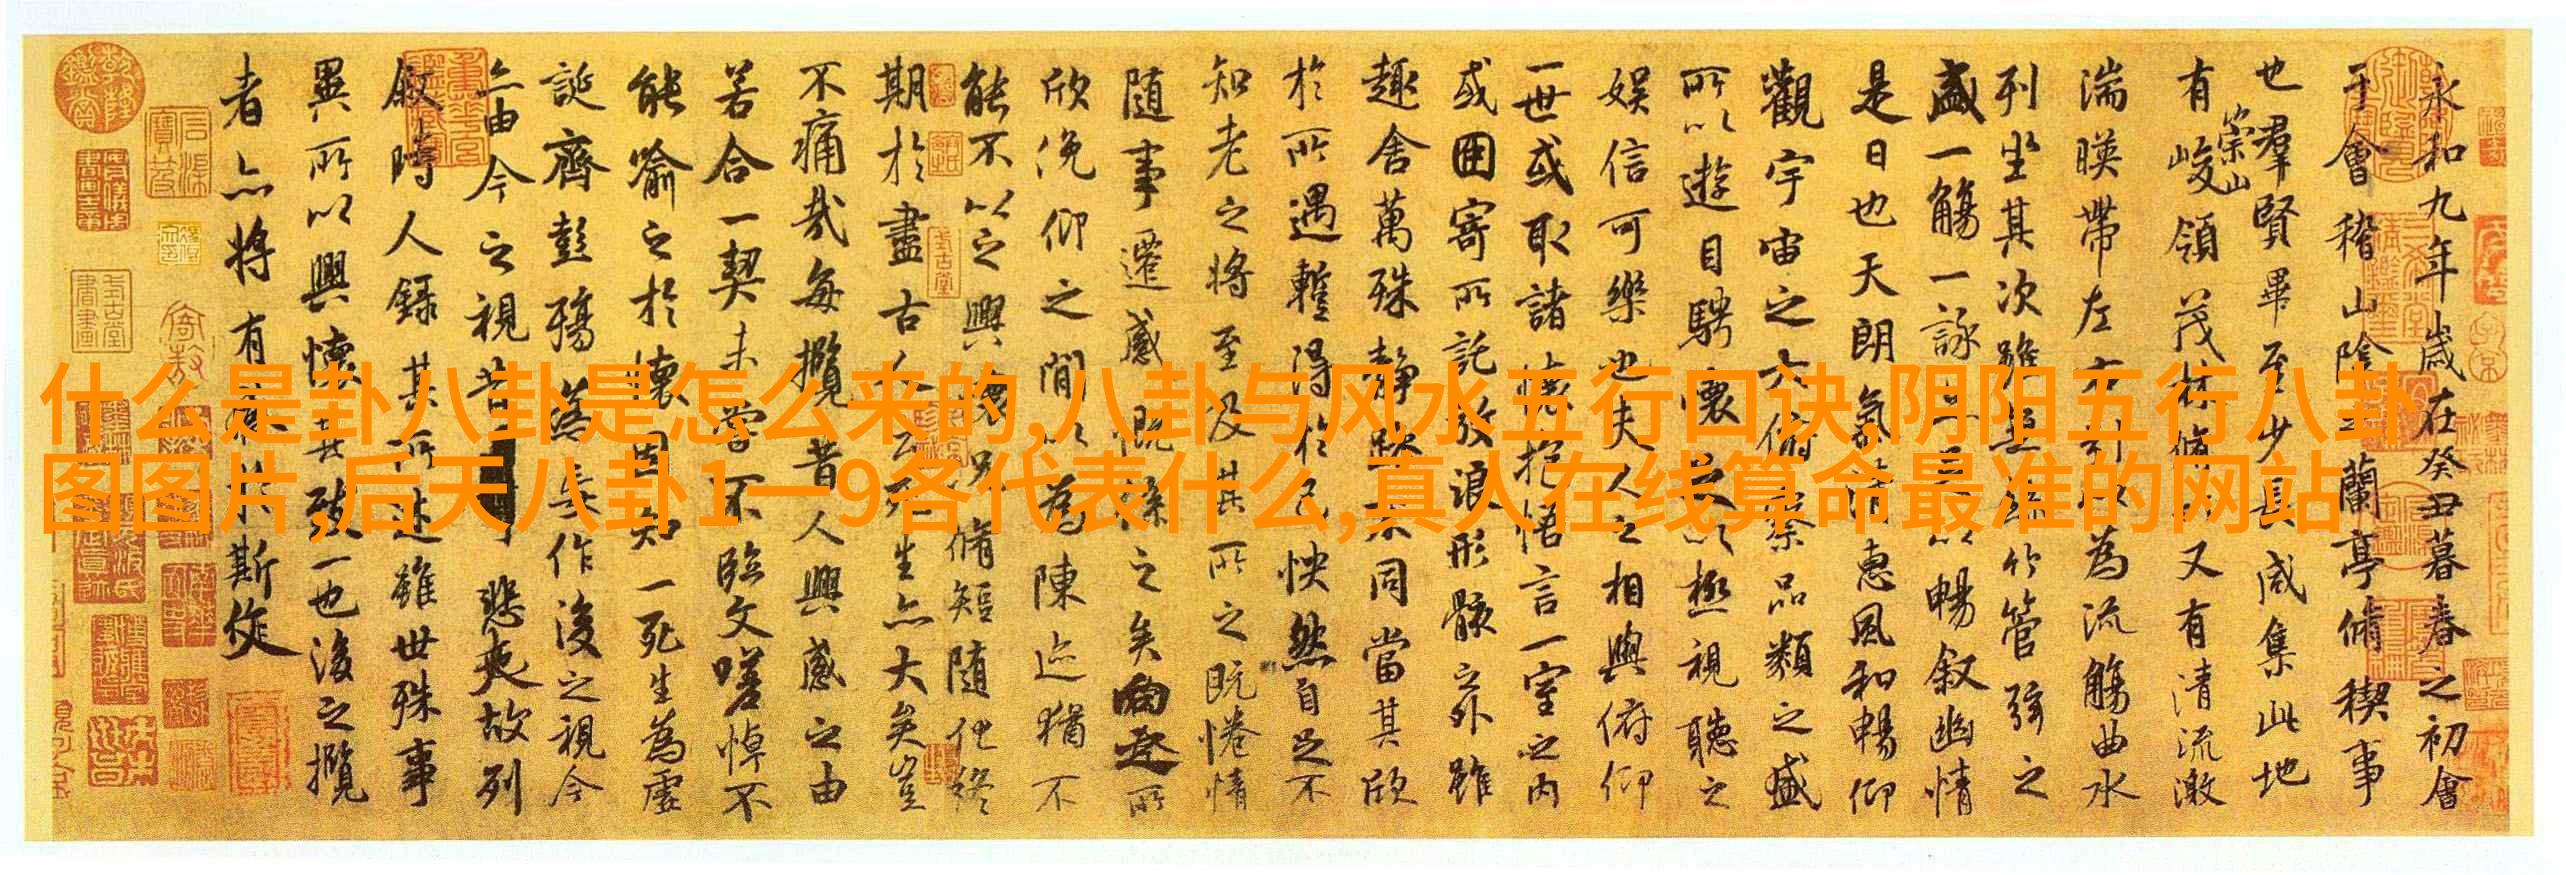 什么是卦八卦是怎么来的,八卦与风水五行口诀,阴阳五行八卦
图图片,后天八卦1一9各代表什么,真人在线算命最准的网站
永和九年歲在癸丑暮春之初會
于會稽山陰之蘭亭脩稧事
也羣賢畢至少長咸集此地
有崇山峻領茂林脩竹又有清流激
湍暎帶左右引以為流觴曲水
列坐其次雖無絲竹管弦之
盛一觴一詠亦足以暢叙幽情
是日也天朗氣清惠風和暢仰
觀宇宙之大俯察品類之盛
所以遊目騁懷足以極視聽之
娛信可樂也夫人之相與俯仰
一世或取諸懷抱悟言一室之內
或因寄所託放浪形骸之外雖
趣舍萬殊靜躁不同當其欣
於所遇蹔得於己怏然自足不
知老之將至及其所之既惓情
隨事遷感慨係之矣向之所
欣俛仰之閒以為陳迹猶不
能不以之興懷況脩短隨化終
期於盡古人云死生亦大矣豈
不痛哉每攬昔人興感之由
若合一契未嘗不臨文嗟悼不
能喻之於懷固知一死生為虛
誕齊彭殤為妄作後之視今
亦由今之視昔悲夫故列
敘時人錄其所述雖世殊事
異所以興懷其致一也後之攬
者亦將有感於斯文